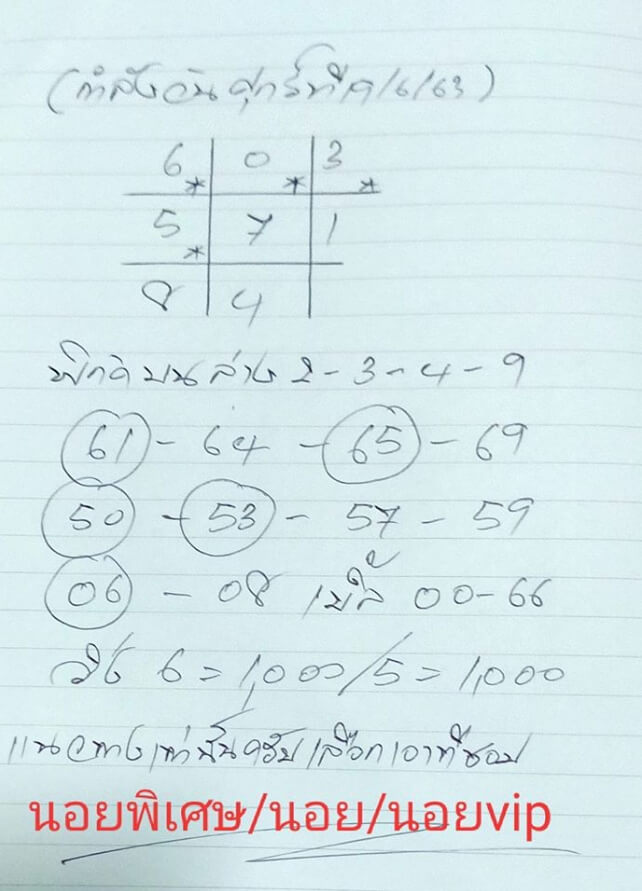 (กำลังวันศุกร์ที่ 9/6/63)
6* 0* 3*
5* 7 1
8 4
พิกัดบนล่าง 2-3-4-9
61 - 64 - 65 - 69
50 - 53 - 57 - 59
06 - 08 เบิ้ล 00-66
วิ่ง 6 = 1,000/5 = 1,000
แนวทางเท่านั้นครับเลือกเอาที่ชอบ
นอยพิเศษ/นอย/นอยvip